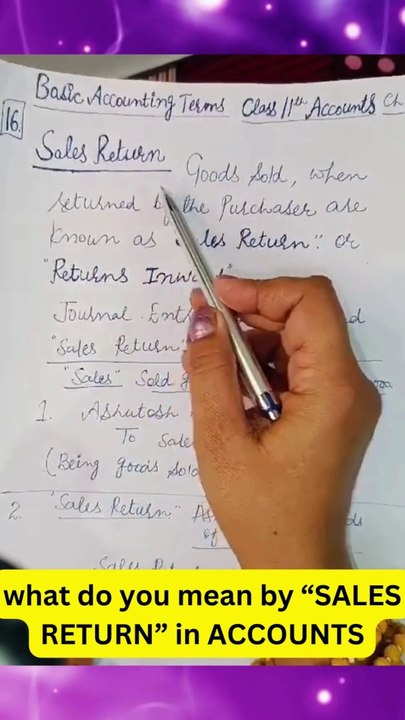 Basic Accounting Terms Class 11th Accounts Ch
16.
Sales Return Goods Sold, when
returned by the Purchaser are
known as Sales Return": or
"Returns Inward"
Journal Ent
"Sales Return"
"Sales" Sold
1. Ashutosh
To Sale
(Being goods Sold
2. "Sales Return"
of
Sales Return
what do you mean by “SALES
RETURN” in ACCOUNTS